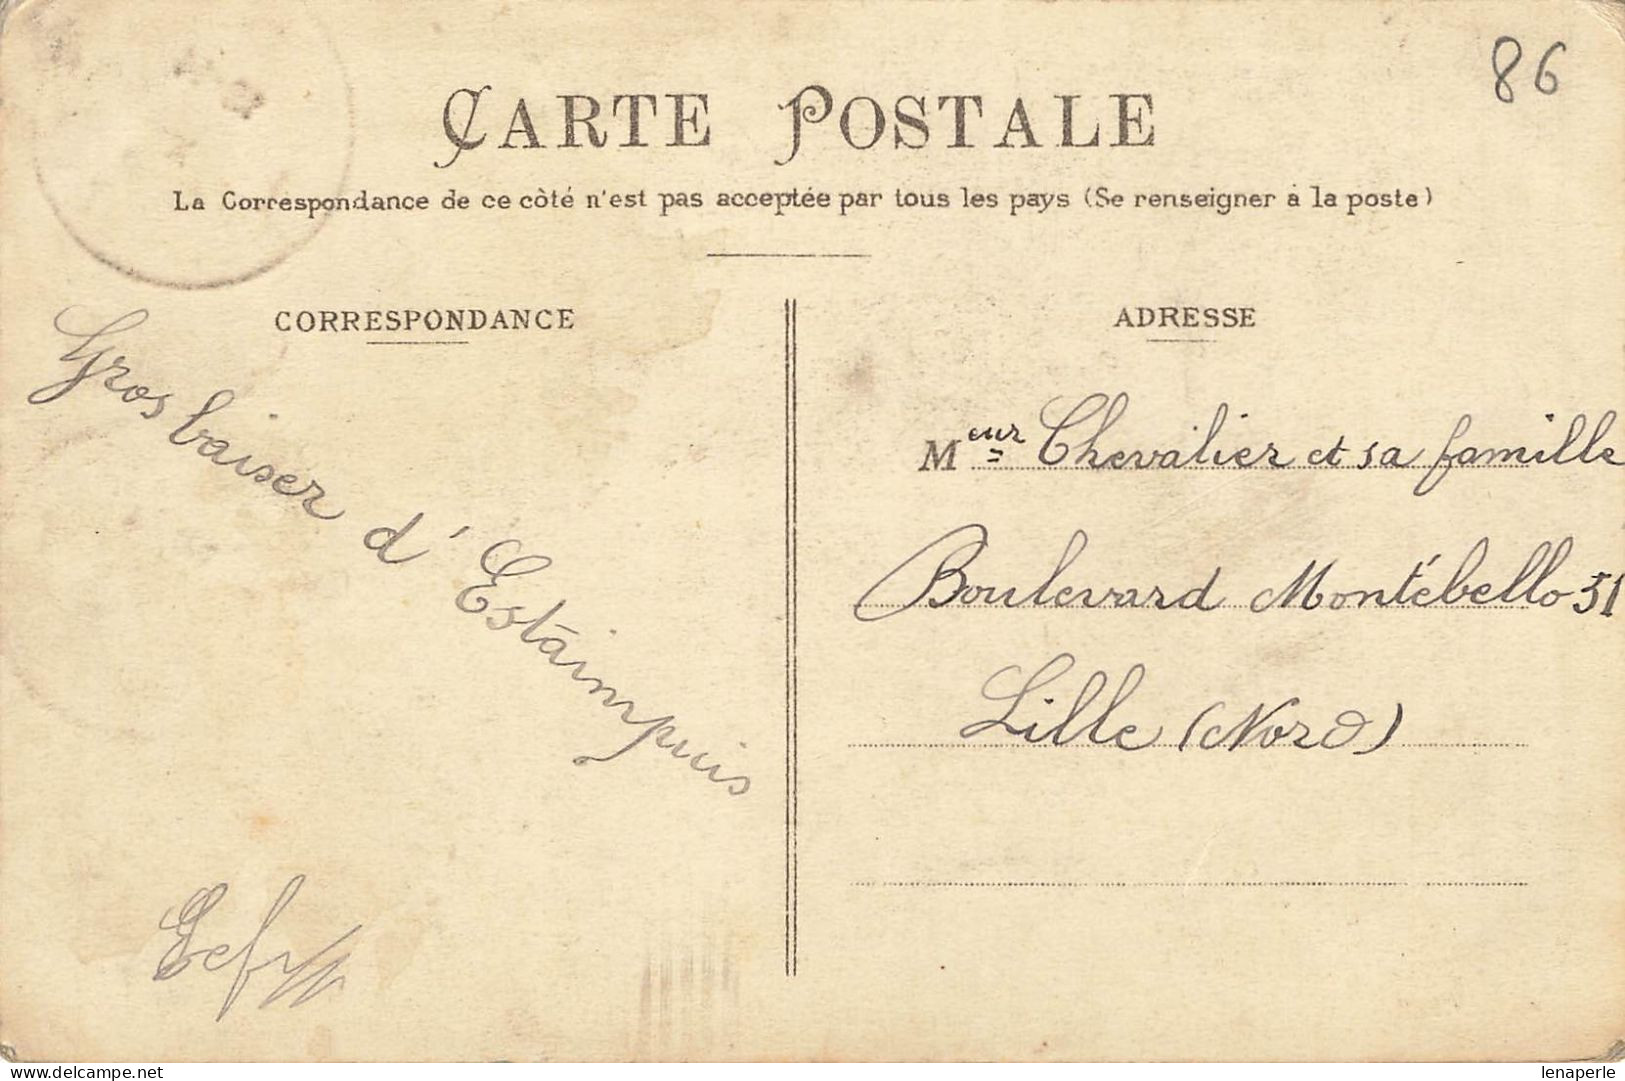 86
CARTE POSTALE
La Correspondance de ce còté n'est pas acceptée par tous les pays (Se renseigner à la poste)
CORRESPONDANCE
Gros baiser d'Estaimpuis
ADRESSE
Meur Chevalier et sa famille
Boulevard Montébello 51
Lille (Nord)
delcampe.net
lenaperle